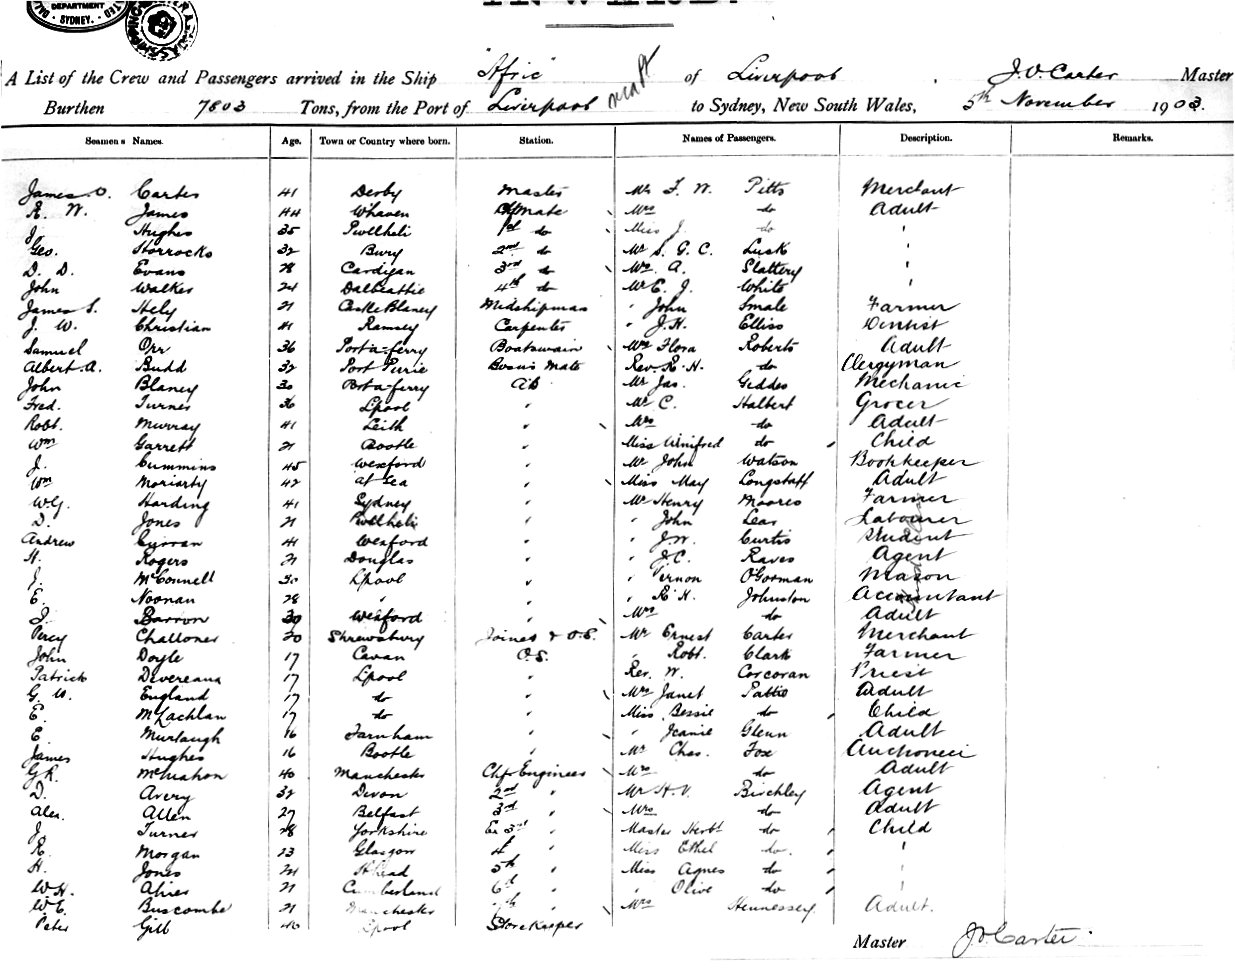 DEPARTMENT
SYDNEY.
A List of the Crew and Passengers arrived in the Ship "Afric" of Liverpool, J.O. Carter Master
Burthen 7803 Tons, from the Port of Liverpool to Sydney, New South Wales, 5th November 1903.
Seamen s Names. Age. Town or Country where born. Station. Names of Passengers. Description. Remarks.
James O. Carter 41 Derby Master Mr F. W. Pitts Merchant
R. W. James 44 W'haven Ch Mate Mrs do Adult
J. Hughes 35 Pwllheli 1st do Miss J. do "
Geo. Horrocks 32 Bury 2nd do Mr S. G. C. Lusk "
D. D. Evans 28 Cardigan 3rd do Mrs A. Slattery "
John Walker 24 Dalbeattie 4th do Mr E. J. White "
James S. Hely 21 Castle Blaney Midshipman " John Smale Farmer
J. W. Christian 41 Ramsey Carpenter " J.H. Elliss Dentist
Samuel Orr 36 Port-a-ferry Boatswain Mrs Flora Roberts Adult
Albert A. Budd 32 Port Pirie Bosun's Mate Rev. R. H. do Clergyman
John Blaney 30 Port-a-ferry AB Mr Jas. Geddes Mechanic
Fred. Turner 36 L'pool " Mr C. Halbert Grocer
Robt. Murray 41 Leith " Mrs do Adult
Wm Garrett 21 Bootle " Miss Winifred do Child
J. Cummins 45 Wexford " Mr John Watson Bookkeeper
Wm Moriarty 42 At Sea " Miss May Longstaff Adult
W.G. Harding 41 Sydney " Mr Henry Moores Farmer
D. Jones 21 Pwllheli " " John Lear Labourer
Andrew Curran 41 Wexford " " J.W. Curtis Student
H. Rogers 21 Douglas " " J.C. Raves Agent
J. McConnell 30 L'pool " " Vernon O'Gorman Mason
E. Noonan 28 " " " R. H. Johnston Accountant
Barron 30 Wexford " Mrs do Adult
Percy Challoner 20 Shrewsbury Joiner & O.S. Mr Ernest Carter Merchant
John Doyle 17 Cavan O.S. " Robt. Clark Farmer
Patrick Devereaux 17 L'pool " Rev. W. Corcoran Priest
G. W. England 17 do " Mrs Janet Pattie Adult
E. McLachlan 17 do " Miss Bessie do Child
E. Murtaugh 16 Farnham " " Jeanie Glenn Adult
James Hughes 16 Bootle " Mr Chas. Fox Auctioneer
G.R. McMahon 40 Manchester Chf Engineer Mrs do Adult
D. Avery 32 Devon 2nd " Mr H.V. Birchley Agent
Alex. Allen 27 Belfast 3rd " Mrs do Adult
J. Turner 28 Yorkshire Ex 3rd " Master Herbt do Child
R. Morgan 23 Glasgow 4 " Miss Ethel do "
H. Jones 24 B'head 5th " Miss Agnes do "
W.H. 21 Cumberland 6th " " Olive do "
W.E. Buscombe 21 Manchester " Mrs Hennessey Adult.
Peter Gill 40 L'pool Storekeeper
Master J.O. Carter